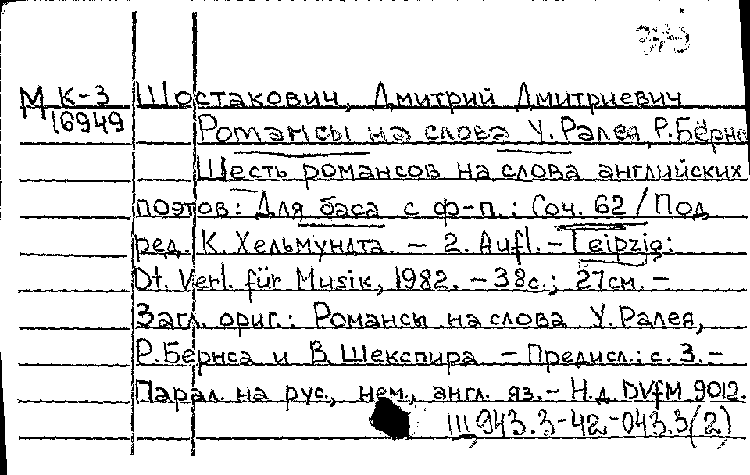 М К-3 Шостакович, Дмитрий Дмитриевич
16949 Романсы на слова У. Ралея, Р. Бёрнс
Шесть романсов на слова английских
поэтов: Для баса с ф-п.: Соч. 62 / Под
ред. К. Хельмундта. – 2. Aufl. – Leipzig:
Dt. Verl. für Musik, 1982. – 38с.; 27см. –
Загл. ориг.: Романсы на слова У. Ралея,
Р. Бернса и В. Шекспира – Предисл.: с. 3. –
Парал. на рус., нем., англ. яз. – Н.д. DVfM 9012.
III,943.3-42-043.3(2)